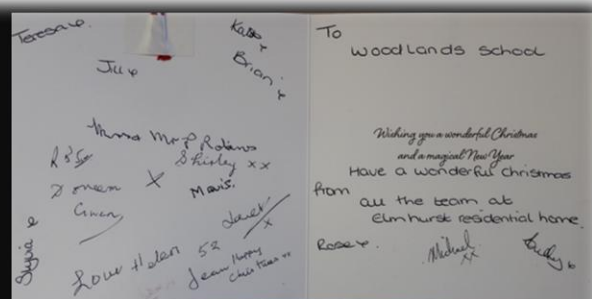 Teresa x.
Kate x
Brian x
Jill x
Mr P Robins
Rose
Shirley xx
Doreen x
Mavis.
Gwen
Janet x
Sylvia x
Love Helen
Jean Happy
Christmas xx
To
Woodlands School
Wishing you a wonderful Christmas
and a magical New Year
Have a wonderful christmas
from
all the team at
Elmhurst residential home.
Rose x.
Michael
xx